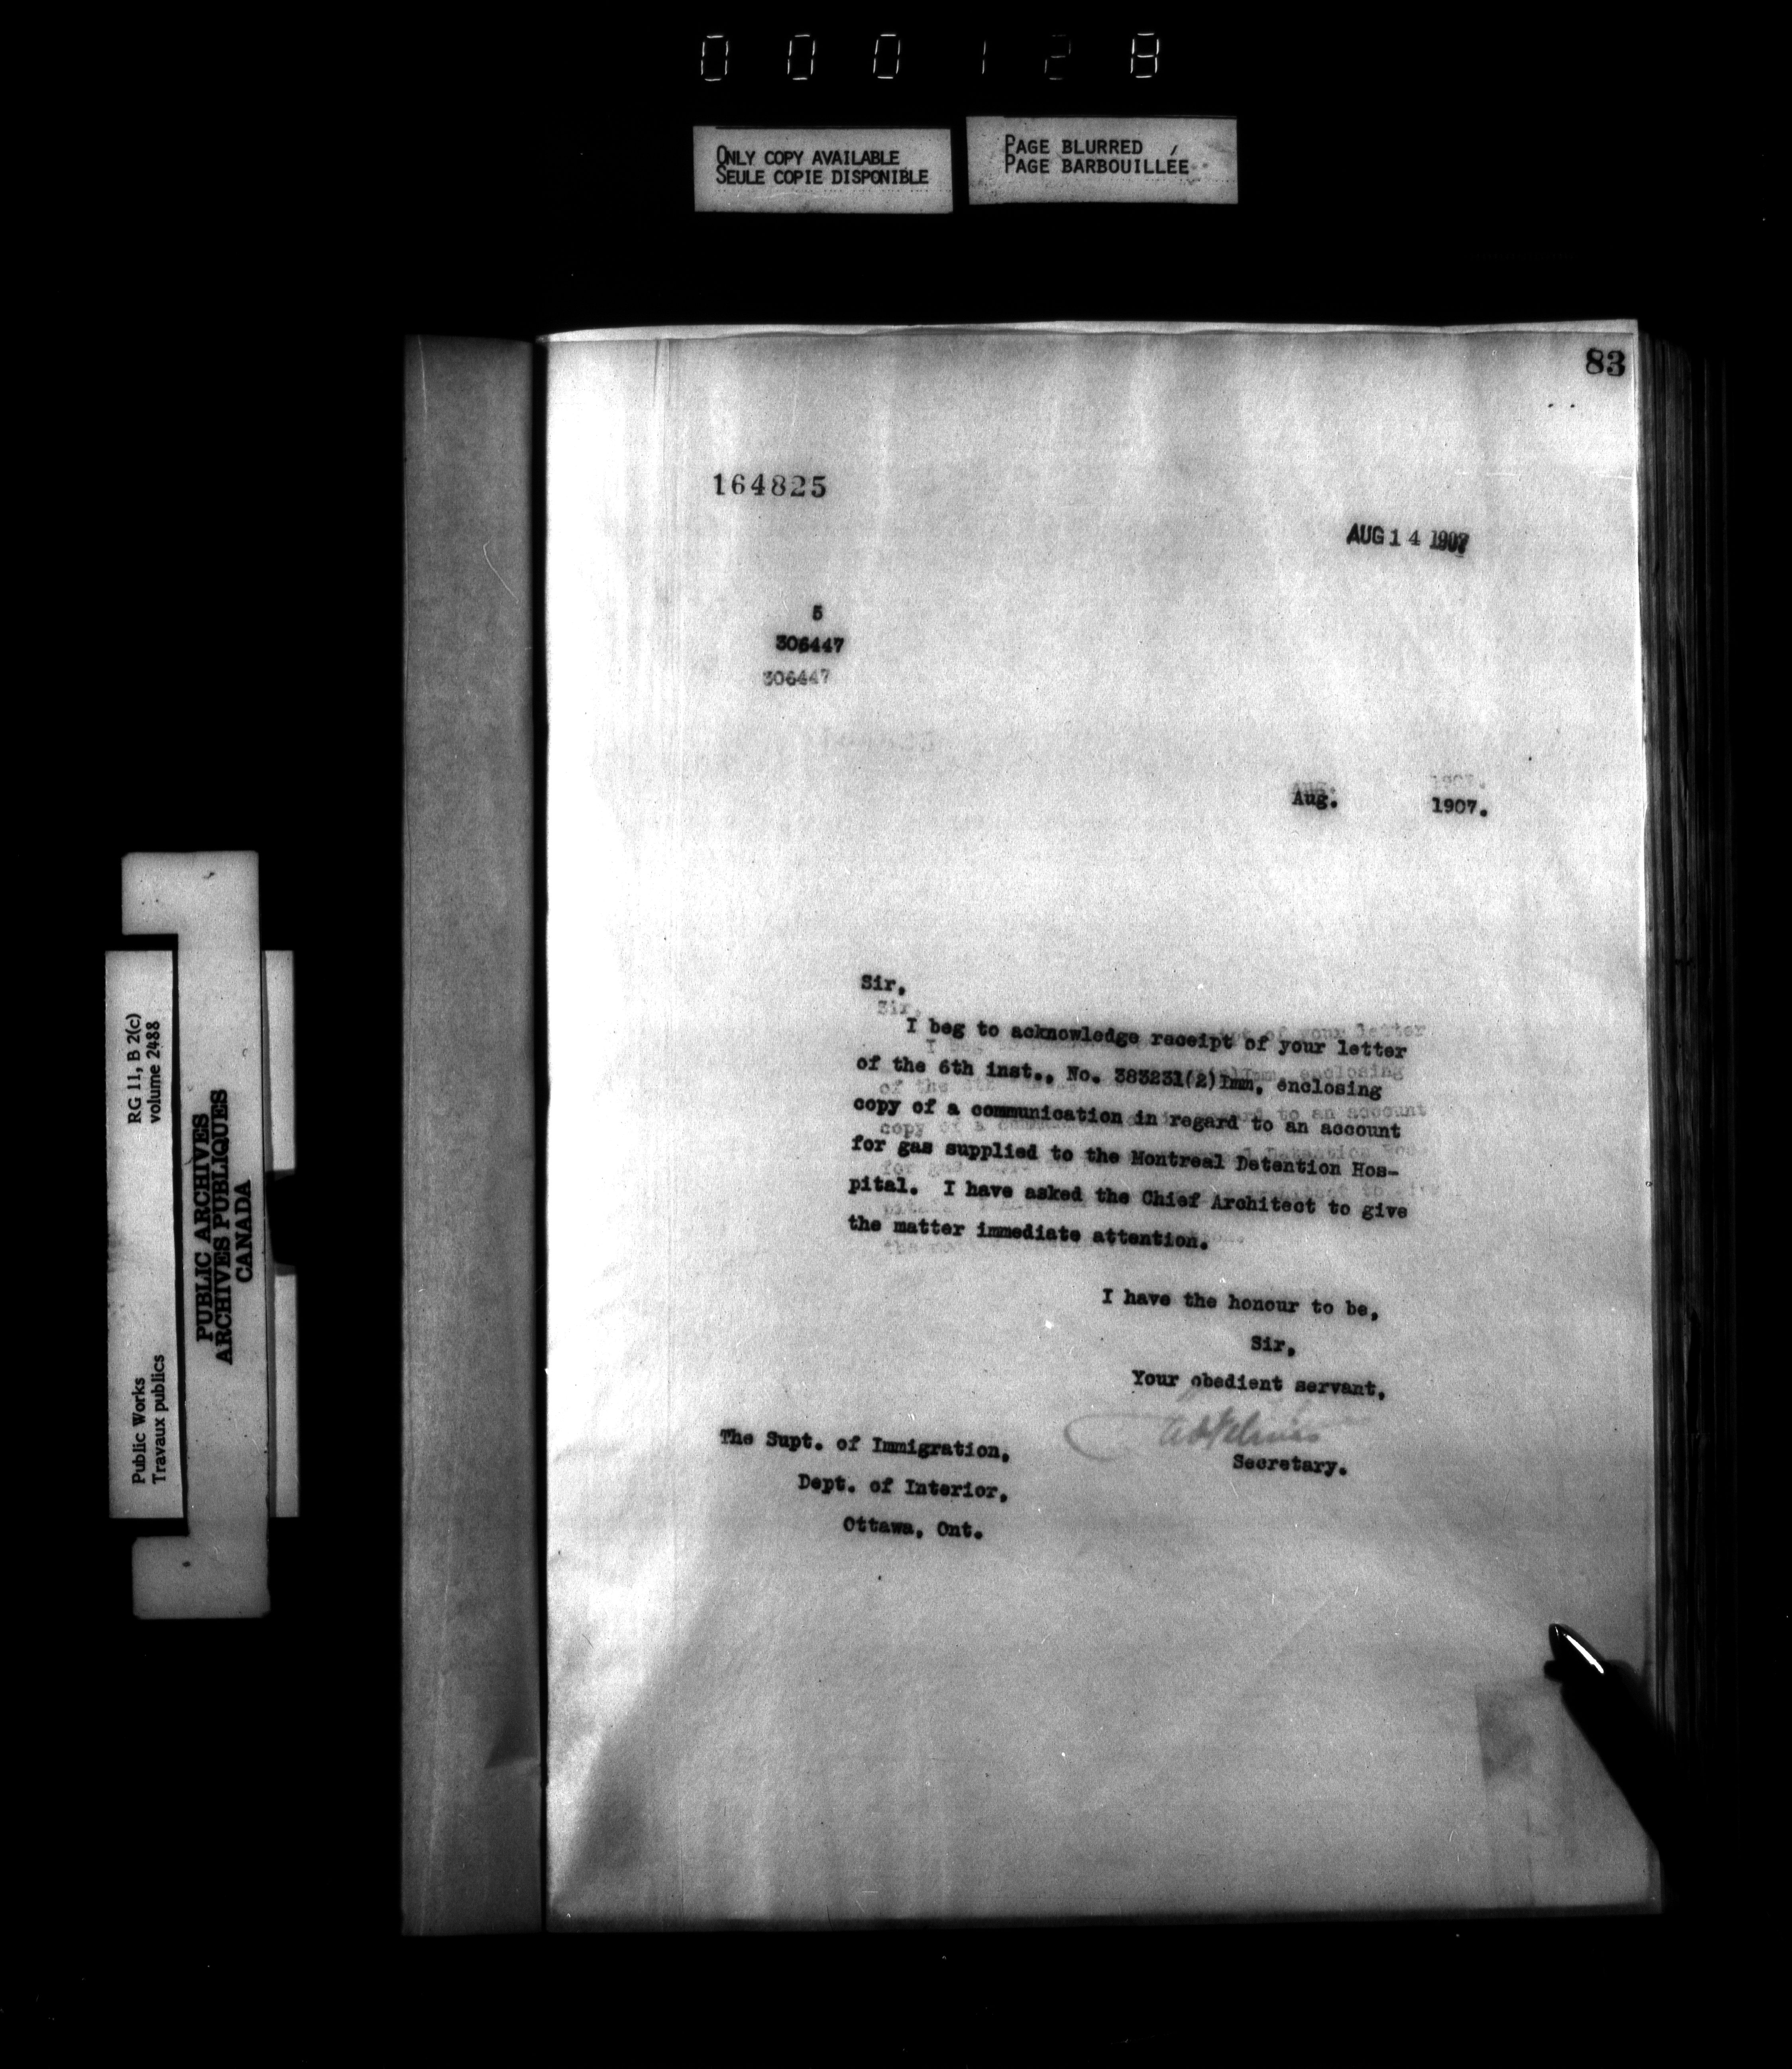 000128
ONLY COPY AVAILABLE
SEULE COPIE DISPONIBLE
PAGE BLURRED
PAGE BARBOUILLÉE
83
164825
AUG 14 1907
5
306447
306447
Aug. 1907.
Sir,
I beg to acknowledge receipt of your letter
of the 6th inst., No. 383231(2)Imm, enclosing
copy of a communication in regard to an account
for gas supplied to the Montreal Detention Hos-
pital. I have asked the Chief Architect to give
the matter immediate attention.
I have the honour to be,
Sir,
Your obedient servant,
Secretary.
The Supt. of Immigration,
Dept. of Interior,
Ottawa, Ont.
RG 11, B 2(c)
volume 2488
PUBLIC ARCHIVES
ARCHIVES PUBLIQUES
CANADA
Public Works
Travaux publics